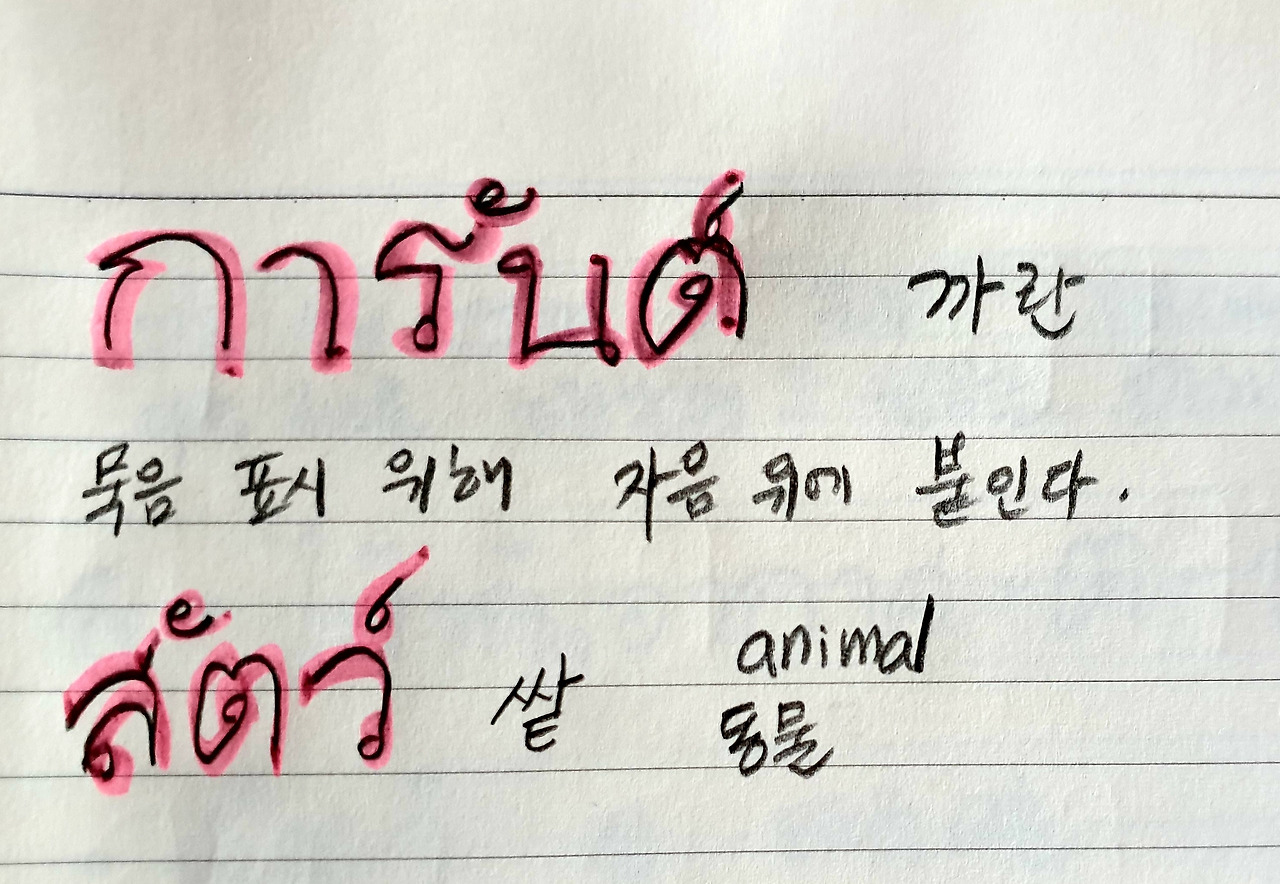 การันต์ 까란
묵음 표시 위해 자음 위에 붙인다.
สัตว์ 쌑 animal
동물